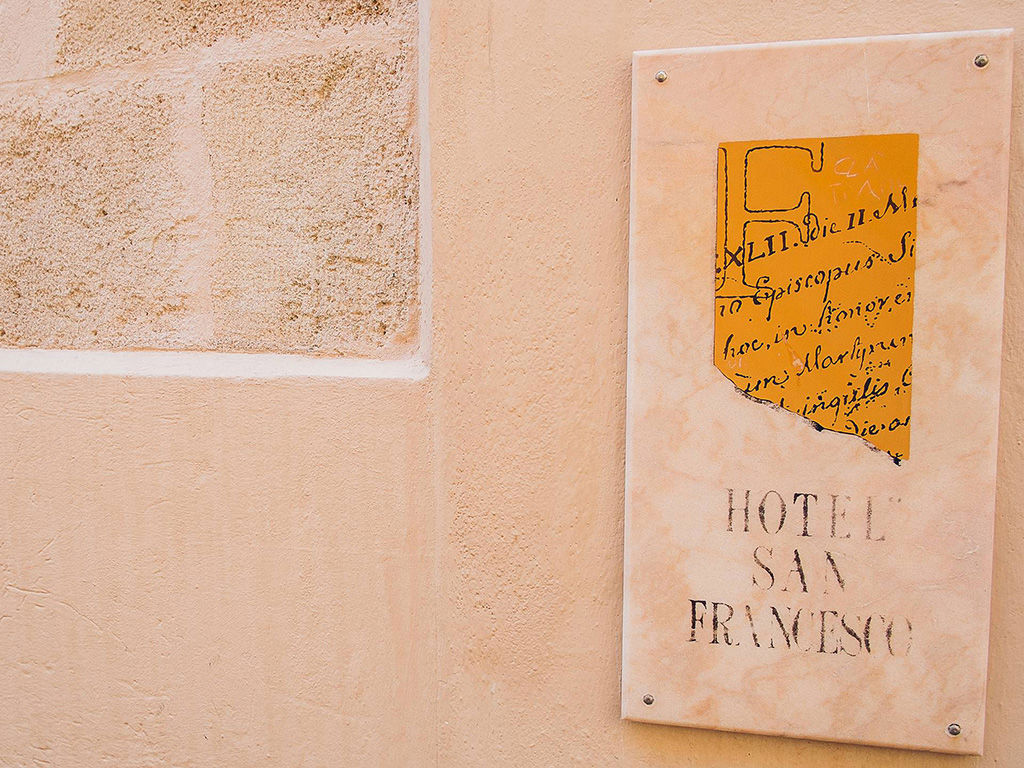 XLII. die II. M
Episcopus Si
hoc, in honorem
Martyrum
singulis
die
HOTEL
SAN
FRANCESCO